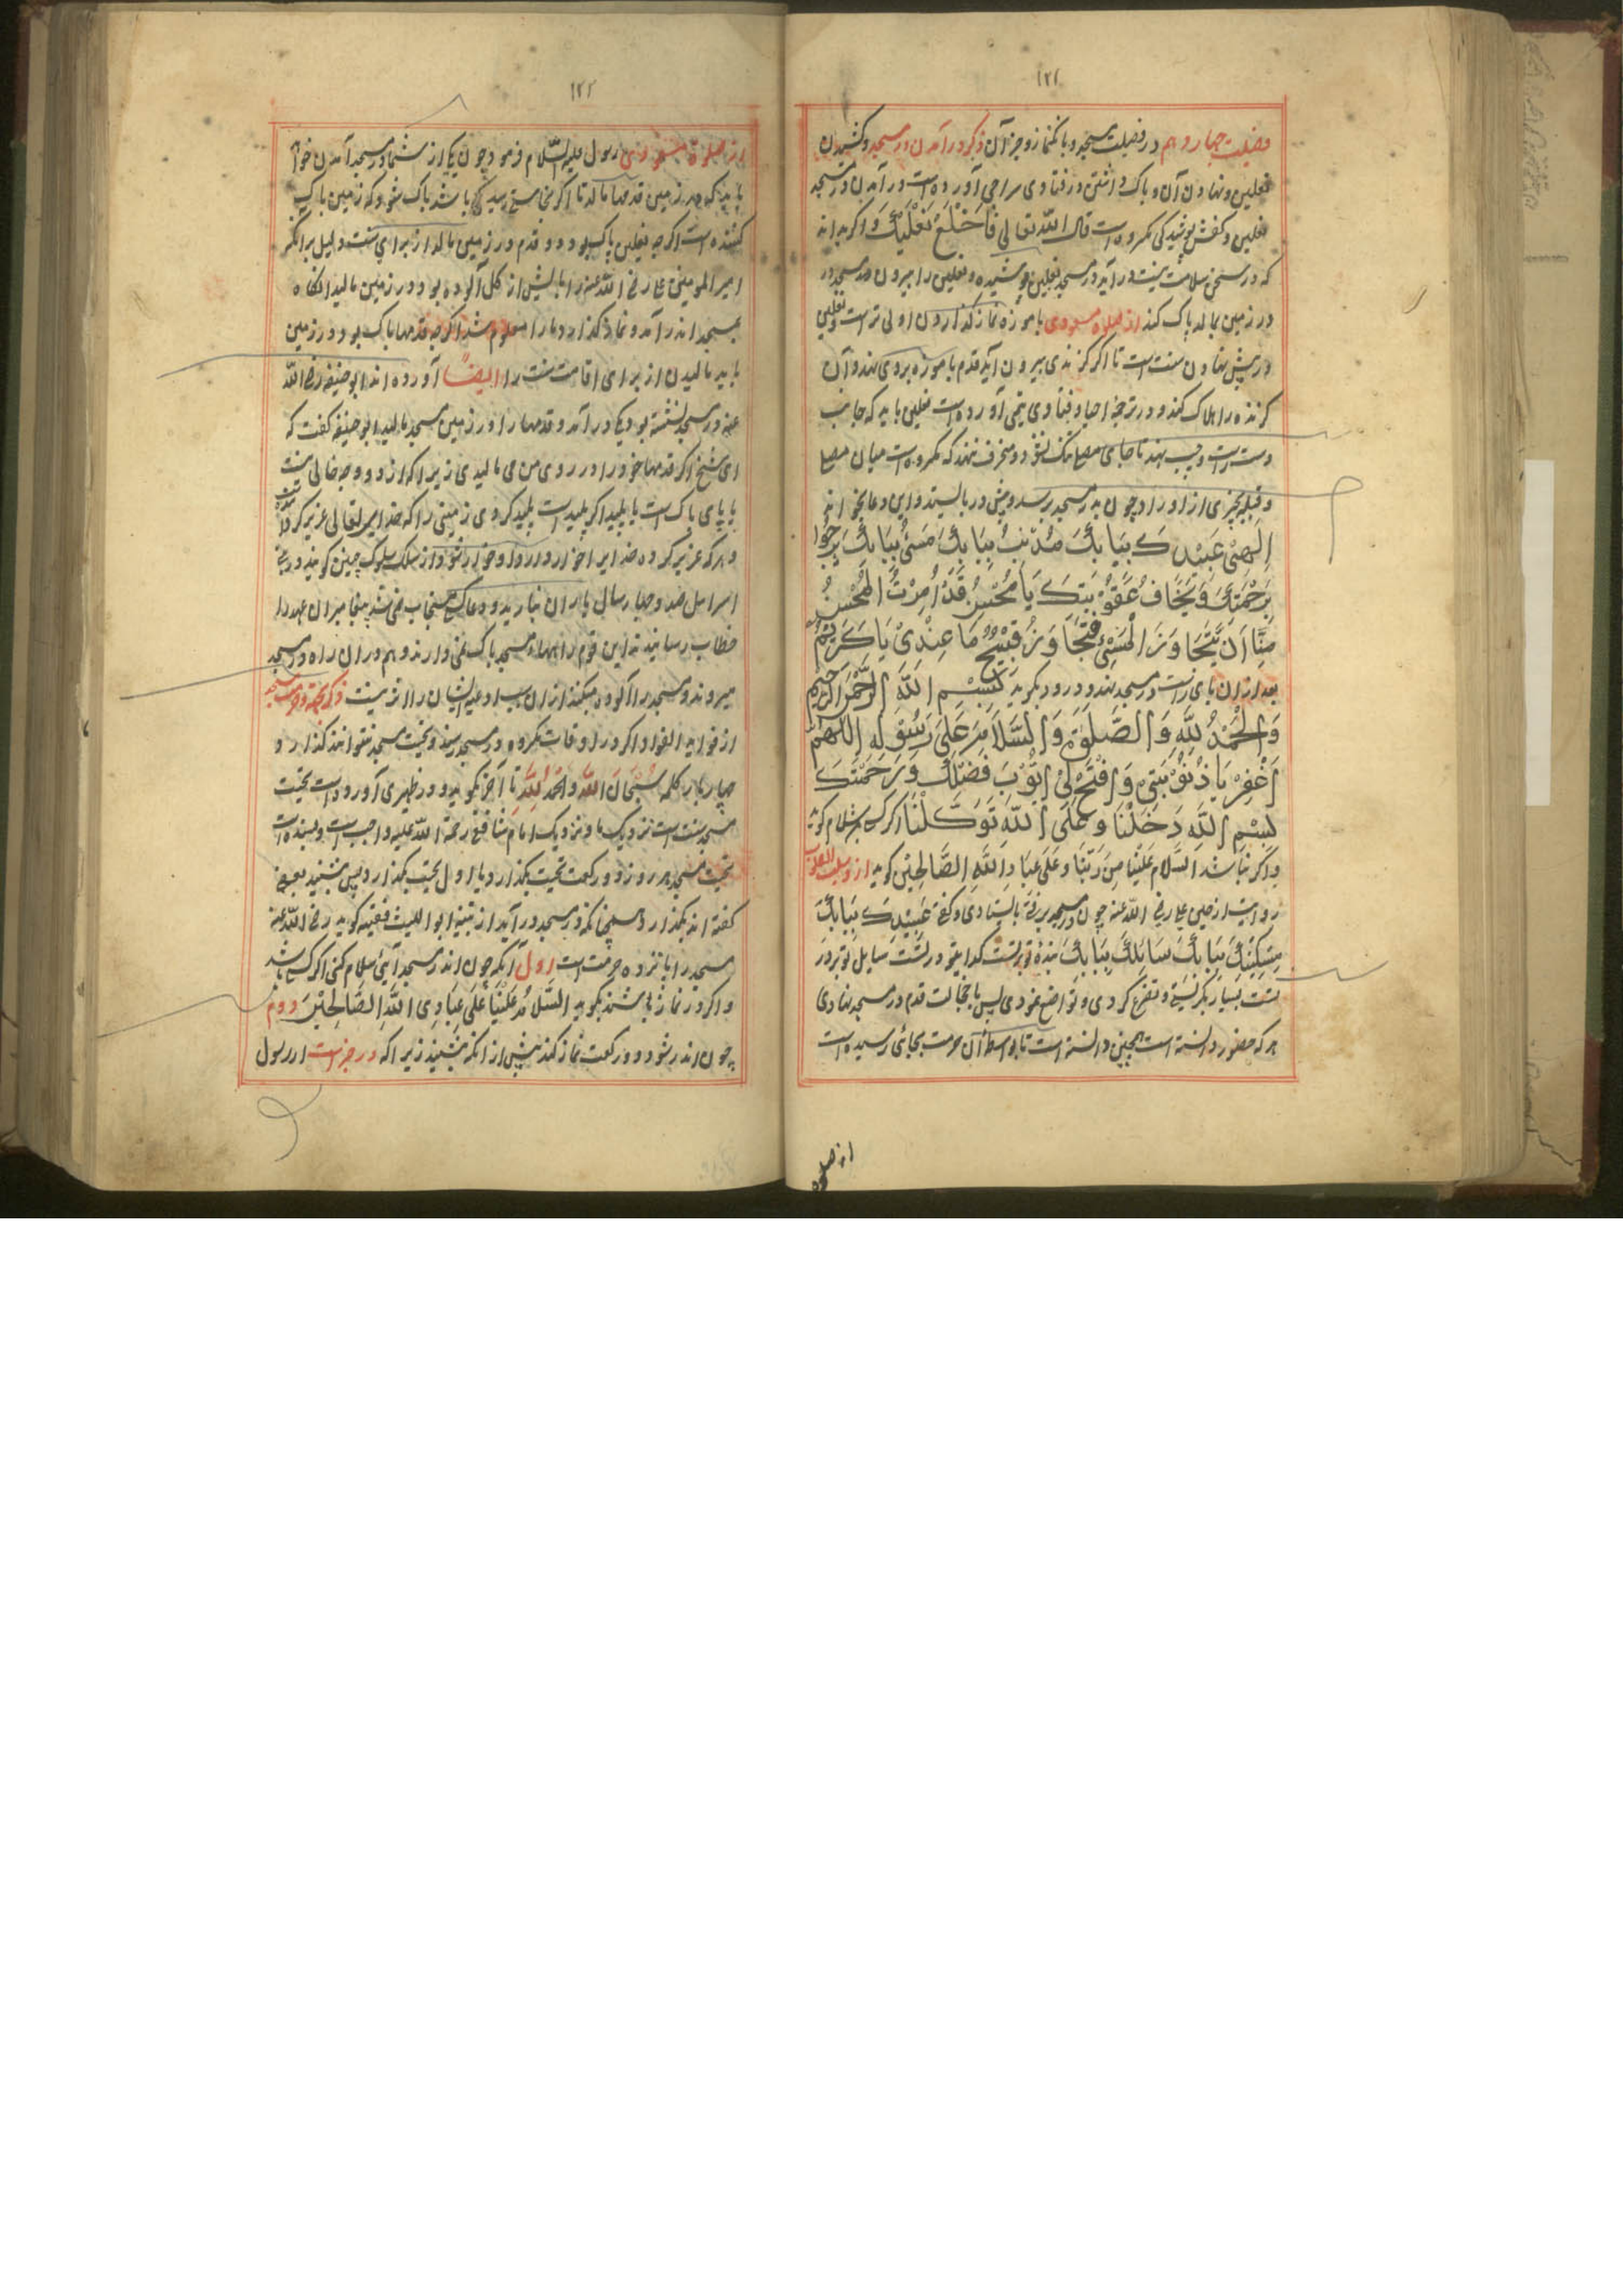 ۱۲۱
فضیلت چهاردهم در فضیلت مسجد و بانگ نماز و جز آن ذکر در آمدن در مسجد و کشیدن
نعلین و نهادن آن و پاک داشتن در فتاوی سراجی آورده است در آمدن در مسجد
نعلین و کفش پوشیدگی مکروه است قال الله تعالی فَاخْلَعْ نَعْلَیْكَ و اگر بداند
که در سخن سلامت نیست در آید در مسجد نعلین پوشیده و نعلین را بیرون مسجد در
در زمین بمالد پاک کند از صلوة مسعودی با موزه نماز گذاردن اولی تر است و نعلین
در پیش نهادن سنت است تا اگر گزندی بیرون آید قدم با موزه بروی نهد و آن
گزنده را هلاک کند و در ترجمه احیا و فتاوی آورده است نعلین باید که جانب
دست راست و چپ نهد تا جای مصلی تنگ نشود و منحرف ننهد که مکروه است میان مصلی
و قبله چیزی از اورا و چون بدر مسجد برسد و پیش در بایستد و این دعا بخواند
اِلٰهِیْ عَبْدُكَ بِبَابِكَ مُذْنِبٌ بِبَابِكَ مَسِئٌ بِبَابِكَ یَرْجُوْا
بِرَحْمَتِكَ وَیَخَافُ عُقُوْبَتِكَ یَا مُحْسِنُ قَدْ اُمِرْتُ الْمُحْسِنُ
مِنَّا اَنْ یَّتَجَاوَزَ الْمَسِئِ فَتَجَاوَزْ قَبِیْحُ مَا عِنْدِیْ یَا كَرِیْمُ
بعد ازان پای راست در مسجد بنهد و درود بگوید بِسْمِ اللّٰهِ الرَّحْمٰنِ الرَّحِیْمِ
وَالْحَمْدُ لِلّٰهِ وَالصَّلٰوةُ وَالسَّلَامُ عَلٰی رَسُوْلِهِ اَللّٰهُمَّ
اغْفِرْ یَا ذُنُوْبَتِیْ وَافْتَحْ لِیْ اَبْوَبَ فَضْلِكَ وَرَحْمَتِكَ
بِسْمِ اللّٰهِ دَخَلْنَا وَعَلَی اللّٰهِ تَوَكَّلْنَا اگر کسی باشد سلام گوید
و اگر نباشد السَّلَام عَلَیْنَا مِنْ رَبِّنَا وَعَلٰی عِبَادِ اللّٰهِ الصَّالِحِیْنَ گوید از
روایت از علی رضی الله عنه چون در مسجد برفتی بایستادی و گفتی عَبْدُكَ بِبَابِكَ
مِسْكِیْنُكَ بِبَابِكَ سَائِلُكَ بِبَابِكَ بندۀ تو بر تست گدای تو در تست سایل تو بر در
تست بسیار بگریستی و تضرع کردی و تواضع نمودی پس با خجالت قدم در مسجد نهادی
هر که حضور دانسته است همچنین دانسته است تا بواسطۀ آن حرمت بجائی رسیده است
از صلوة
۱۲۲
از صلوة مسعودی رسول علیه السّلام فرمود چون یکی از شما در مسجد آمدن خواهد
باید که در زمین قدمها مالد تا اگر باشد پاک شود که زمین پاک
کننده است اگرچه نعلین پاک بود و قدم در زمین مالد از برای سنت دلیل بر آنکه
امیر المومنین علی رضی الله عنه را پایش از گل آلوده بود در زمین مالید آنگاه
بمسجد اندر آمد و نماز گذارد ما را معلوم شد اگرچه قدمها پاک بود در زمین
باید مالیدن از برای اقامت سنت را ایضًا آورده اند ابو حنیفه رضی الله
عنه در مسجد نشسته بود یکی در آمد و قدمها را در زمین مسجد مالید ابو حنیفه گفت که
ای شیخ اگر قدمها خود را در روی من می مالیدی زیرا که از دو وجه خالی نیست
یا پای پاک است یا پلید اگر پلید است پلید کردی زمینی را که خدایتعالی عزیز کرده
و هر که عزیز کرده خدایرا خوار دارد او خوار شود از سلک سلوک چنین گویند در بنی
اسرائیل صد و چهار سال باران نبارید و دعا کسی مستجاب نمی شد پیغامبر آن عهد را
خطاب رسانید که این قوم راهها مسجد پاک نمی دارند و هم دران راه در مسجد
میروند و مسجد را آلوده میکنند ازان سبب دعا ایشان را اثر نیست ذکر تحیت مسجد
از فواید الفواد اگر در اوقات مکروه در مسجد رسند و تحیت مسجد نتوانند گذارد
چهار بار کلمه سُبْحَانَ اللّٰهِ وَالْحَمْدُ لِلّٰهِ تا آخر بگوید و در ظهیری آورده است تحیت
مسجد سنت است نزدیک ما و نزدیک امام شافعی رحمة الله علیه واجب است و بسنده است
تحیت مسجد هر روز دو رکعت تحیت بگذارد یا اول تحیت بگذارد پس بنشیند بعضی
گفته اند بگذارد همچنانکه در مسجد در آید از تنبیه ابو اللیث فقیه گوید رضی الله عنه
مسجد را پانزده حرمت است اول آنکه چون اندر مسجد آیئ سلام کنی اگر کسی باشد
و اگر در نماز باشند بگوید السَّلَامُ عَلَیْنَا عَلٰی عِبَادِی اللّٰهِ الصَّالِحِیْنَ دوم
چون اندر شود دو رکعت نماز کند پیش از آنکه بنشیند زیرا که در خبر است از رسول